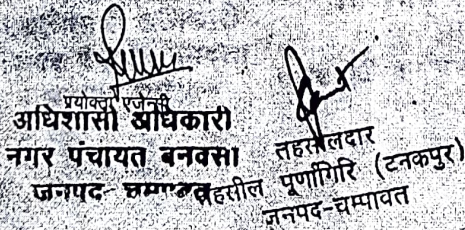 प्रयोक्ता एजेन्सी
अधिशासी अधिकारी
नगर पंचायत बनबसा
जनपद- चम्पावत
तहसीलदार
तहसील पूर्णागिरि (टनकपुर)
जनपद-चम्पावत